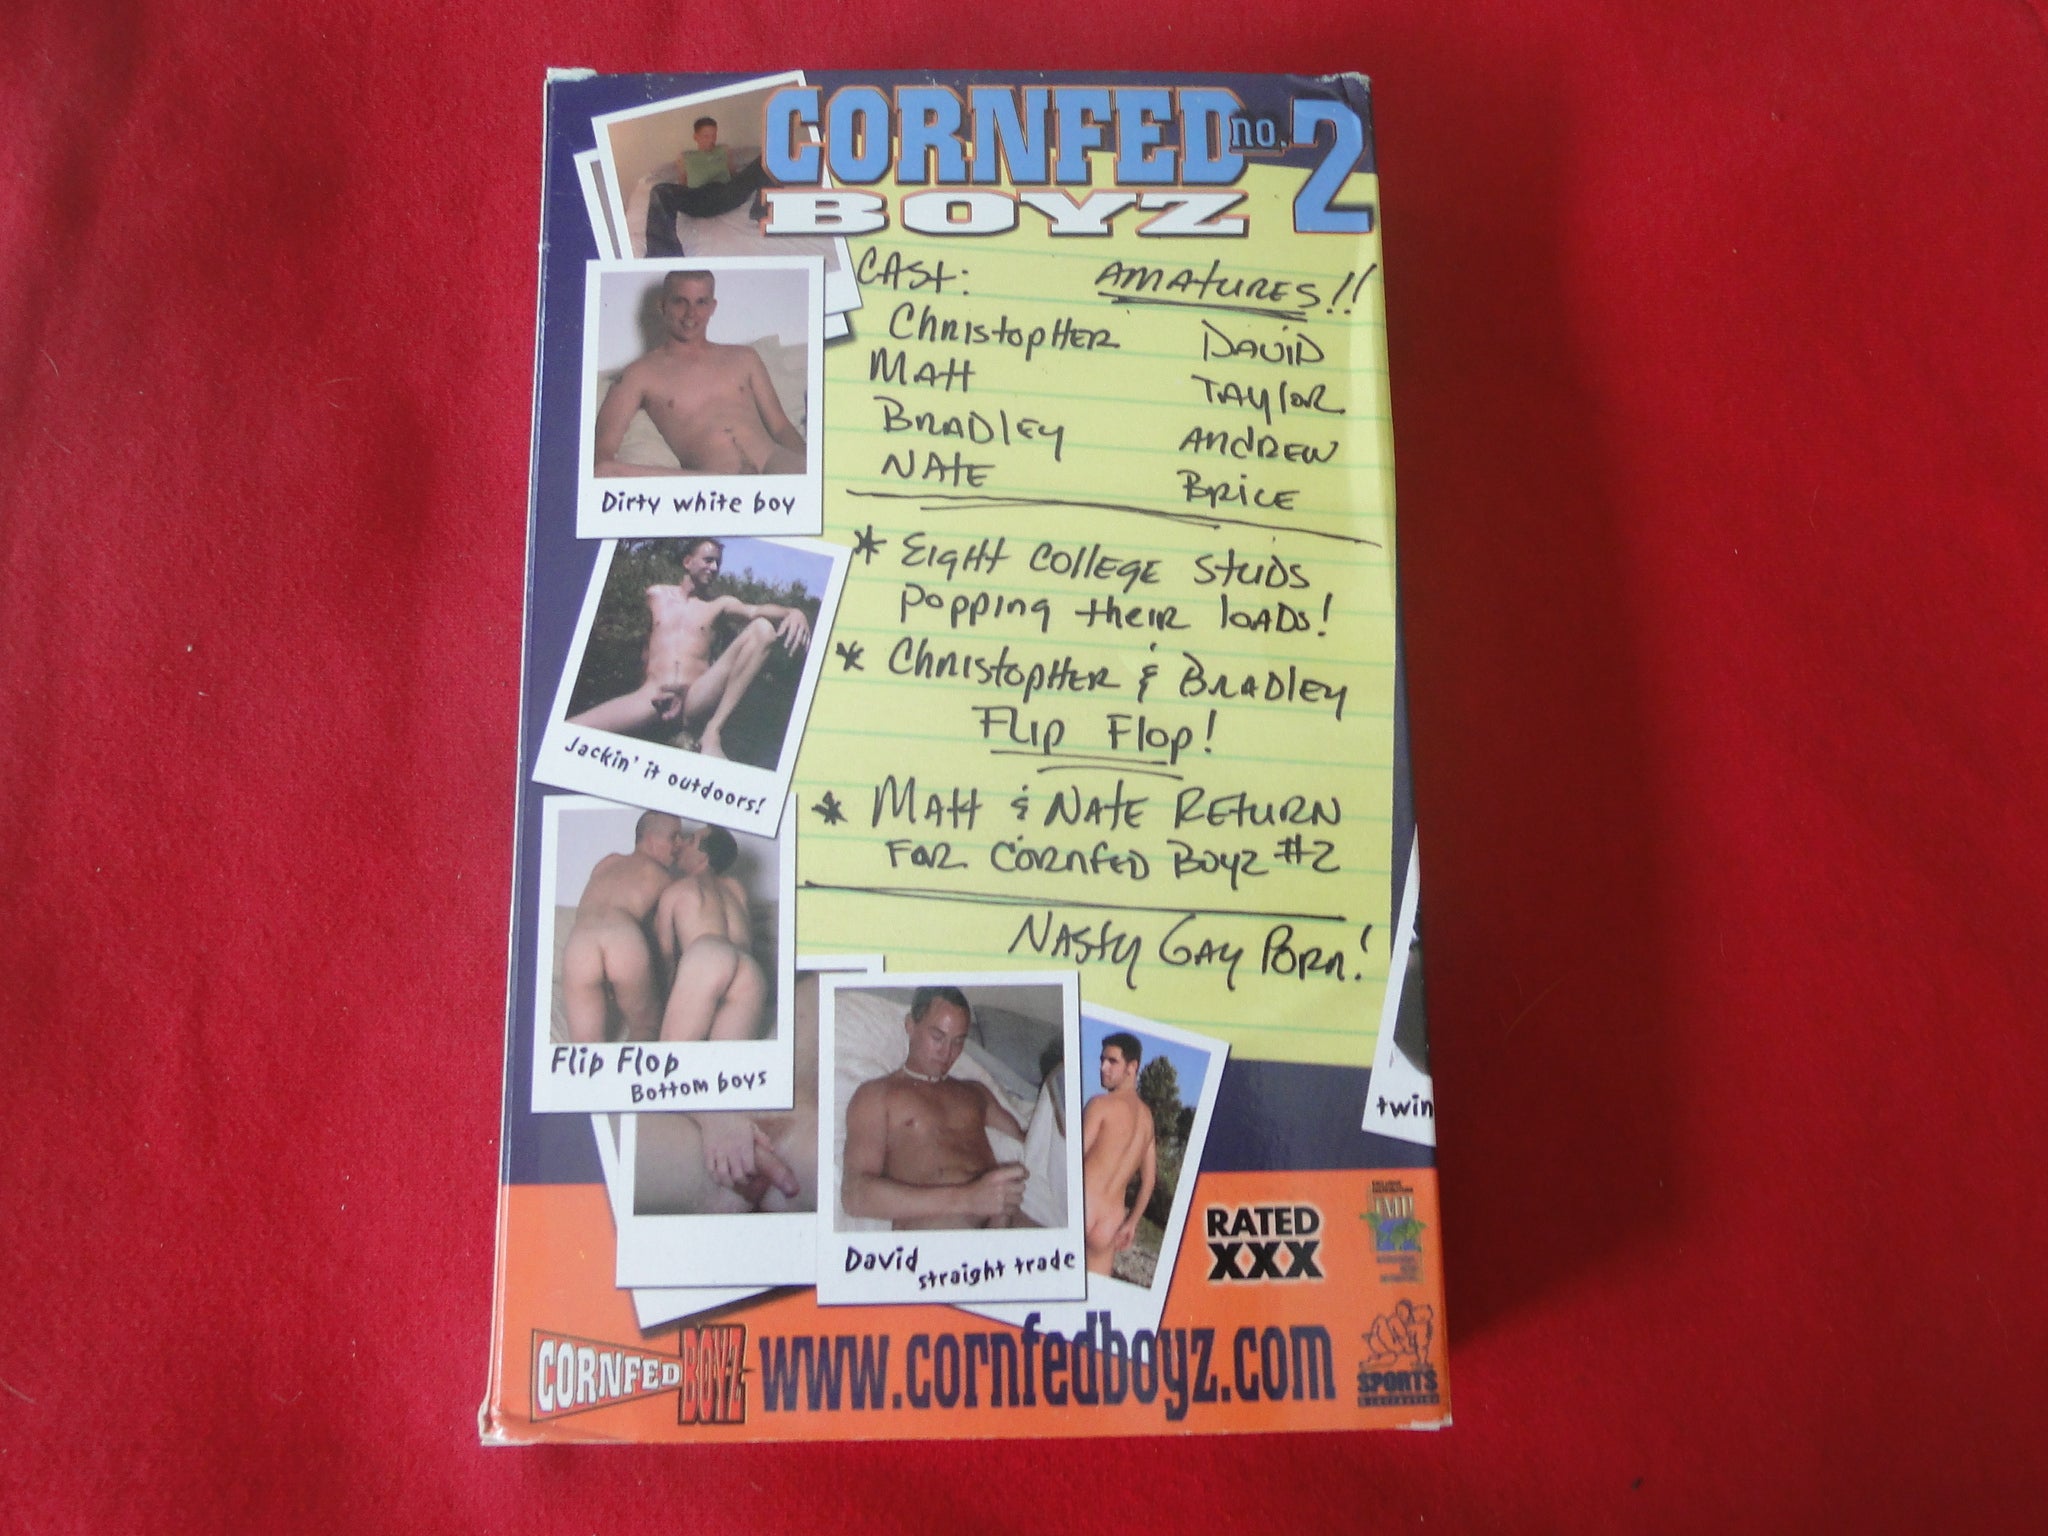 CORNFED no. 2
BOYZ
CAST: AMATURES!!
Christopher David
Matt Taylor
Bradley Andrew
Nate Brice
* Eight College Studs
popping their loads!
* Christopher & Bradley
Flip Flop!
* Matt & Nate Return
For Cornfed Boyz #2
Nasty Gay Porn!
Dirty white boy
Jackin' it outdoors!
Flip Flop
Bottom boys
David
straight trade
twin
RATED
XXX
CORNFED BOYZ
www.cornfedboyz.com
SPORTS